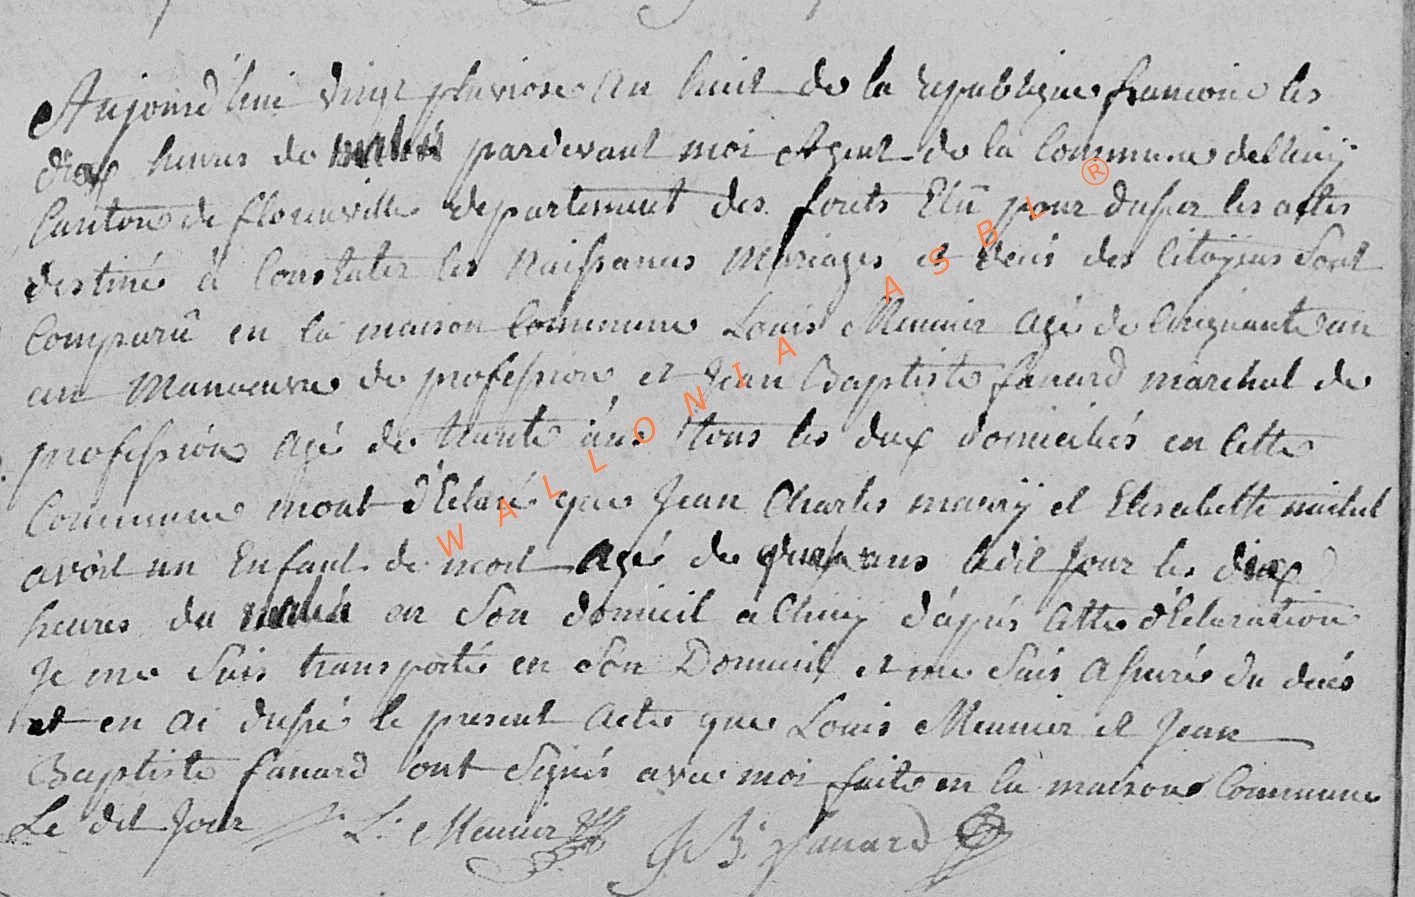 Aujourd'hui vingt pluviose an huit de la republique francoise les
dix heures de matin pardevant moi Agent de la Commune de Chiny
Canton de florenville departement des forets Elû pour dresser les actes
destinés à Constater les Naissances Mariages et deces des Citoÿens Sont
Comparû en la maison Commune Louis Meunier agé de Cinquante un
an Manoeuvre de profession et Jean Baptiste fanard marchal de
profession agé de trante ans tous les dux domiciliés en Cette
Commune mont d'Eclaré que Jean Charles mavÿ et Elisabette michel
avoit un Enfant de mort Agé de ans ledit Jour les dix
heures du matin en Son domicil a Chiny d'apés Cette d'Eclaration
Je me Suis transporté en Son Domicil et me Suis assurés du decés
et en ai dressé le present Acte que Louis Meunier et Jean
Baptiste fanard ont Signés avec moi faite en la maison Commune
Le dit Jour L. Meunier J B. fanard
WALLONIA ASBL ®